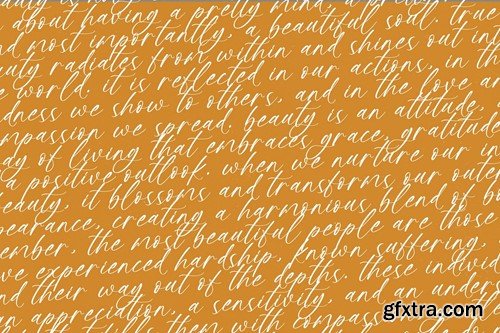 about having a pretty mind,
nd most importantly, a beautiful soul. true
uty radiates from within and shines out in
e world. it is reflected in our actions, in th
dness we show to others, and in the love a
mpassion we spread. beauty is an attitude,
dy of living that embraces grace, gratitud
a positive outlook. when we nurture our in
eauty, it blossoms and transforms our oute
pearance, creating a harmonious blend of b
ember, the most beautiful people are those
ve experienced hardship, known suffering,
nd their way out of the depths. these individ
an appreciation, a sensitivity, and an unders
them with compass
gfxtra.com